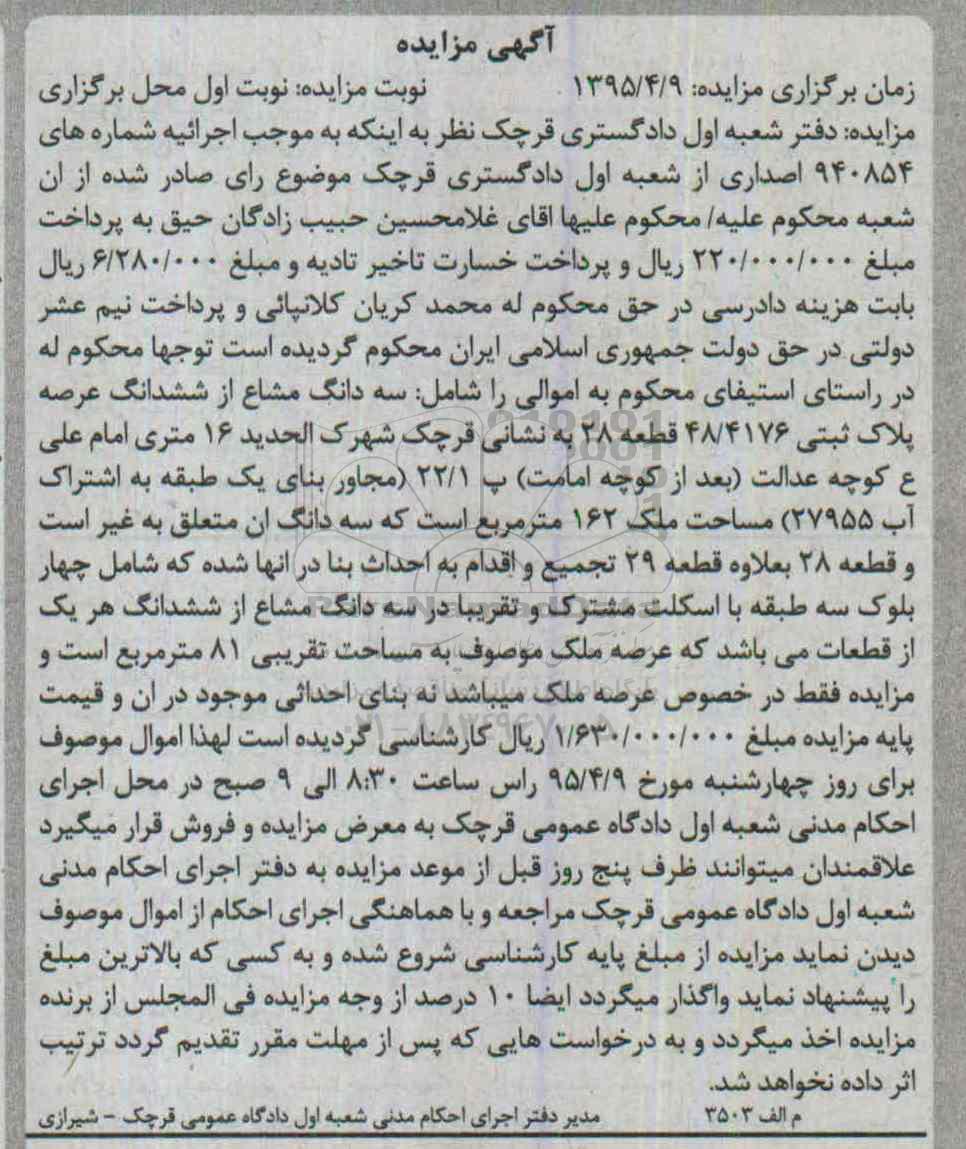 آگهی مزایده
زمان برگزاری مزایده: ۱۳۹۵/۴/۹ نوبت مزایده: نوبت اول محل برگزاری
مزایده: دفتر شعبه اول دادگستری قرچک نظر به اینکه به موجب اجرائیه شماره های
۹۴۰۸۵۴ اصداری از شعبه اول دادگستری قرچک موضوع رای صادر شده از ان
شعبه محکوم علیه/ محکوم علیها اقای غلامحسین حبیب زادگان حیق به پرداخت
مبلغ ۲۲۰/۰۰۰/۰۰۰ ریال و پرداخت خسارت تاخیر تادیه و مبلغ ۶/۲۸۰/۰۰۰ ریال
بابت هزینه دادرسی در حق محکوم له محمد کریان کلانپائی و پرداخت نیم عشر
دولتی در حق دولت جمهوری اسلامی ایران محکوم گردیده است توجها محکوم له
در راستای استیفای محکوم به اموالی را شامل: سه دانگ مشاع از ششدانگ عرصه
پلاک ثبتی ۴۸/۴۱۷۶ قطعه ۲۸ به نشانی قرچک شهرک الحدید ۱۶ متری امام علی
ع کوچه عدالت (بعد از کوچه امامت) پ ۲۲/۱ (مجاور بنای یک طبقه به اشتراک
آب ۲۷۹۵۵) مساحت ملک ۱۶۲ مترمربع است که سه دانگ ان متعلق به غیر است
و قطعه ۲۸ بعلاوه قطعه ۲۹ تجمیع و اقدام به احداث بنا در انها شده که شامل چهار
بلوک سه طبقه با اسکلت مشترک و تقریبا در سه دانگ مشاع از ششدانگ هر یک
از قطعات می باشد که عرصه ملک موصوف به مساحت تقریبی ۸۱ مترمربع است و
مزایده فقط در خصوص عرصه ملک میباشد نه بنای احداثی موجود در ان و قیمت
پایه مزایده مبلغ ۱/۶۳۰/۰۰۰/۰۰۰ ریال کارشناسی گردیده است لهذا اموال موصوف
برای روز چهارشنبه مورخ ۹۵/۴/۹ راس ساعت ۸:۳۰ الی ۹ صبح در محل اجرای
احکام مدنی شعبه اول دادگاه عمومی قرچک به معرض مزایده و فروش قرار میگیرد
علاقمندان میتوانند ظرف پنج روز قبل از موعد مزایده به دفتر اجرای احکام مدنی
شعبه اول دادگاه عمومی قرچک مراجعه و با هماهنگی اجرای احکام از اموال موصوف
دیدن نماید مزایده از مبلغ پایه کارشناسی شروع شده و به کسی که بالاترین مبلغ
را پیشنهاد نماید واگذار میگردد ایضا ۱۰ درصد از وجه مزایده فی المجلس از برنده
مزایده اخذ میگردد و به درخواست هایی که پس از مهلت مقرر تقدیم گردد ترتیب
اثر داده نخواهد شد.
م الف ۳۵۰۳ مدیر دفتر اجرای احکام مدنی شعبه اول دادگاه عمومی قرچک - شیرازی